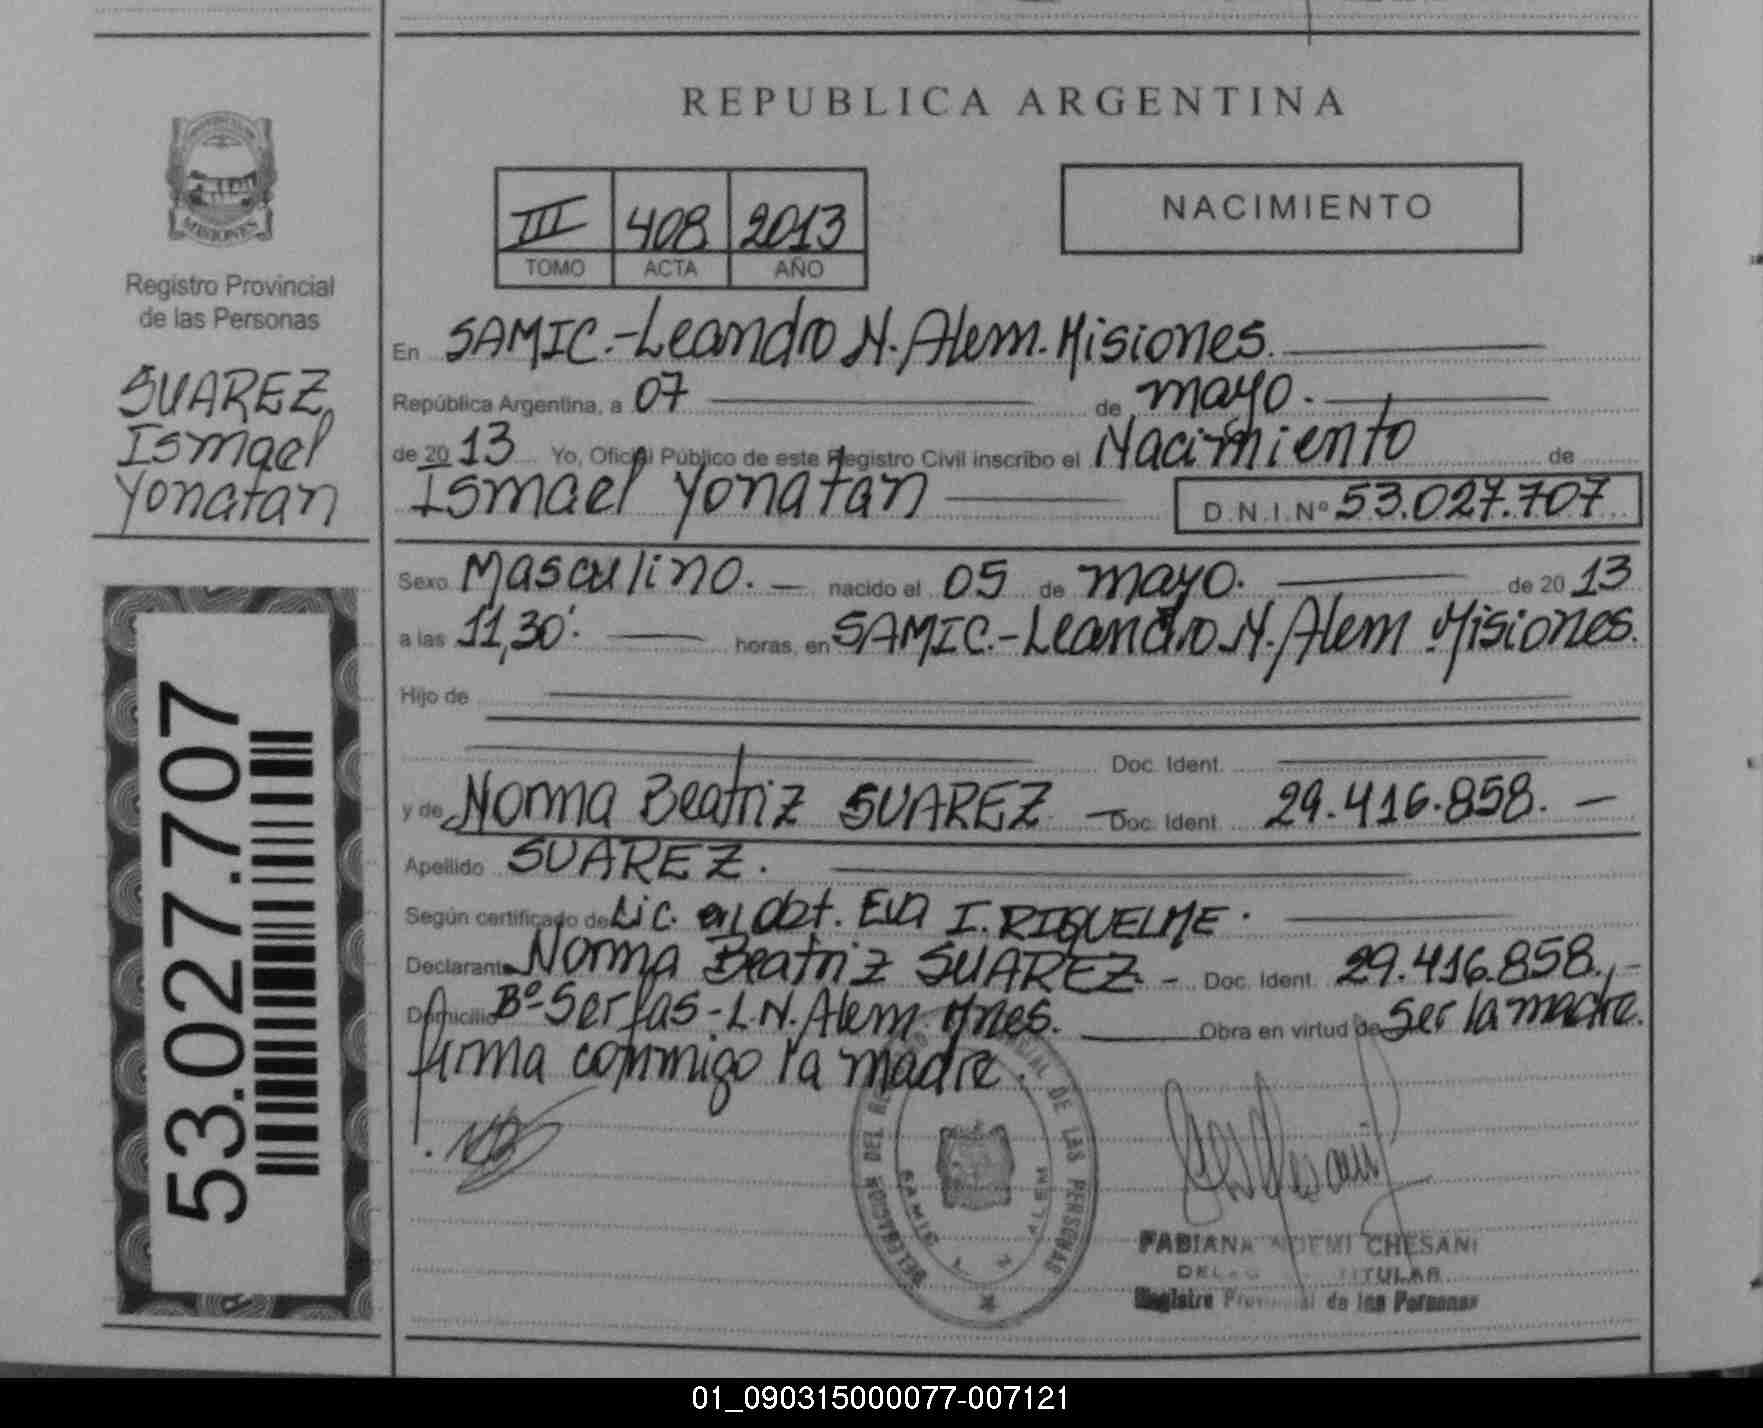 REPUBLICA ARGENTINA
MISIONES
Registro Provincial
de las Personas
SUAREZ,
Ismael
Yonatan
53.027.707
III 408 2013
TOMO ACTA AÑO
NACIMIENTO
En SAMIC.-Leandro N. Alem. Misiones.
República Argentina, a 07 de mayo.
de 2013 Yo, Oficial Público de este Registro Civil inscribo el Nacimiento de
Ismael Yonatan D.N.I.Nº 53.027.707
Sexo Masculino. nacido el 05 de mayo. de 2013
a las 11,30'. horas, en SAMIC.-Leandro N. Alem Misiones.
Hijo de
Doc. Ident.
y de Norma Beatriz SUAREZ Doc. Ident. 29.416.858.
Apellido SUAREZ.
Según certificado de Lic. en Obt. Eva I. RIQUELME.
Declarante Norma Beatriz SUAREZ.- Doc. Ident. 29.416.858.-
Domicilio Bº-Serfas-L.N. Alem. Mnes. Obra en virtud de Ser la madre.
firma conmigo la madre.
DELEGACION DEL REGISTRO PROVINCIAL DE LAS PERSONAS
SAMIC L. N. ALEM
FABIANA NOEMI CHESANI
TITULAR
Registro Provincial de las Personas
01_090315000077-007121